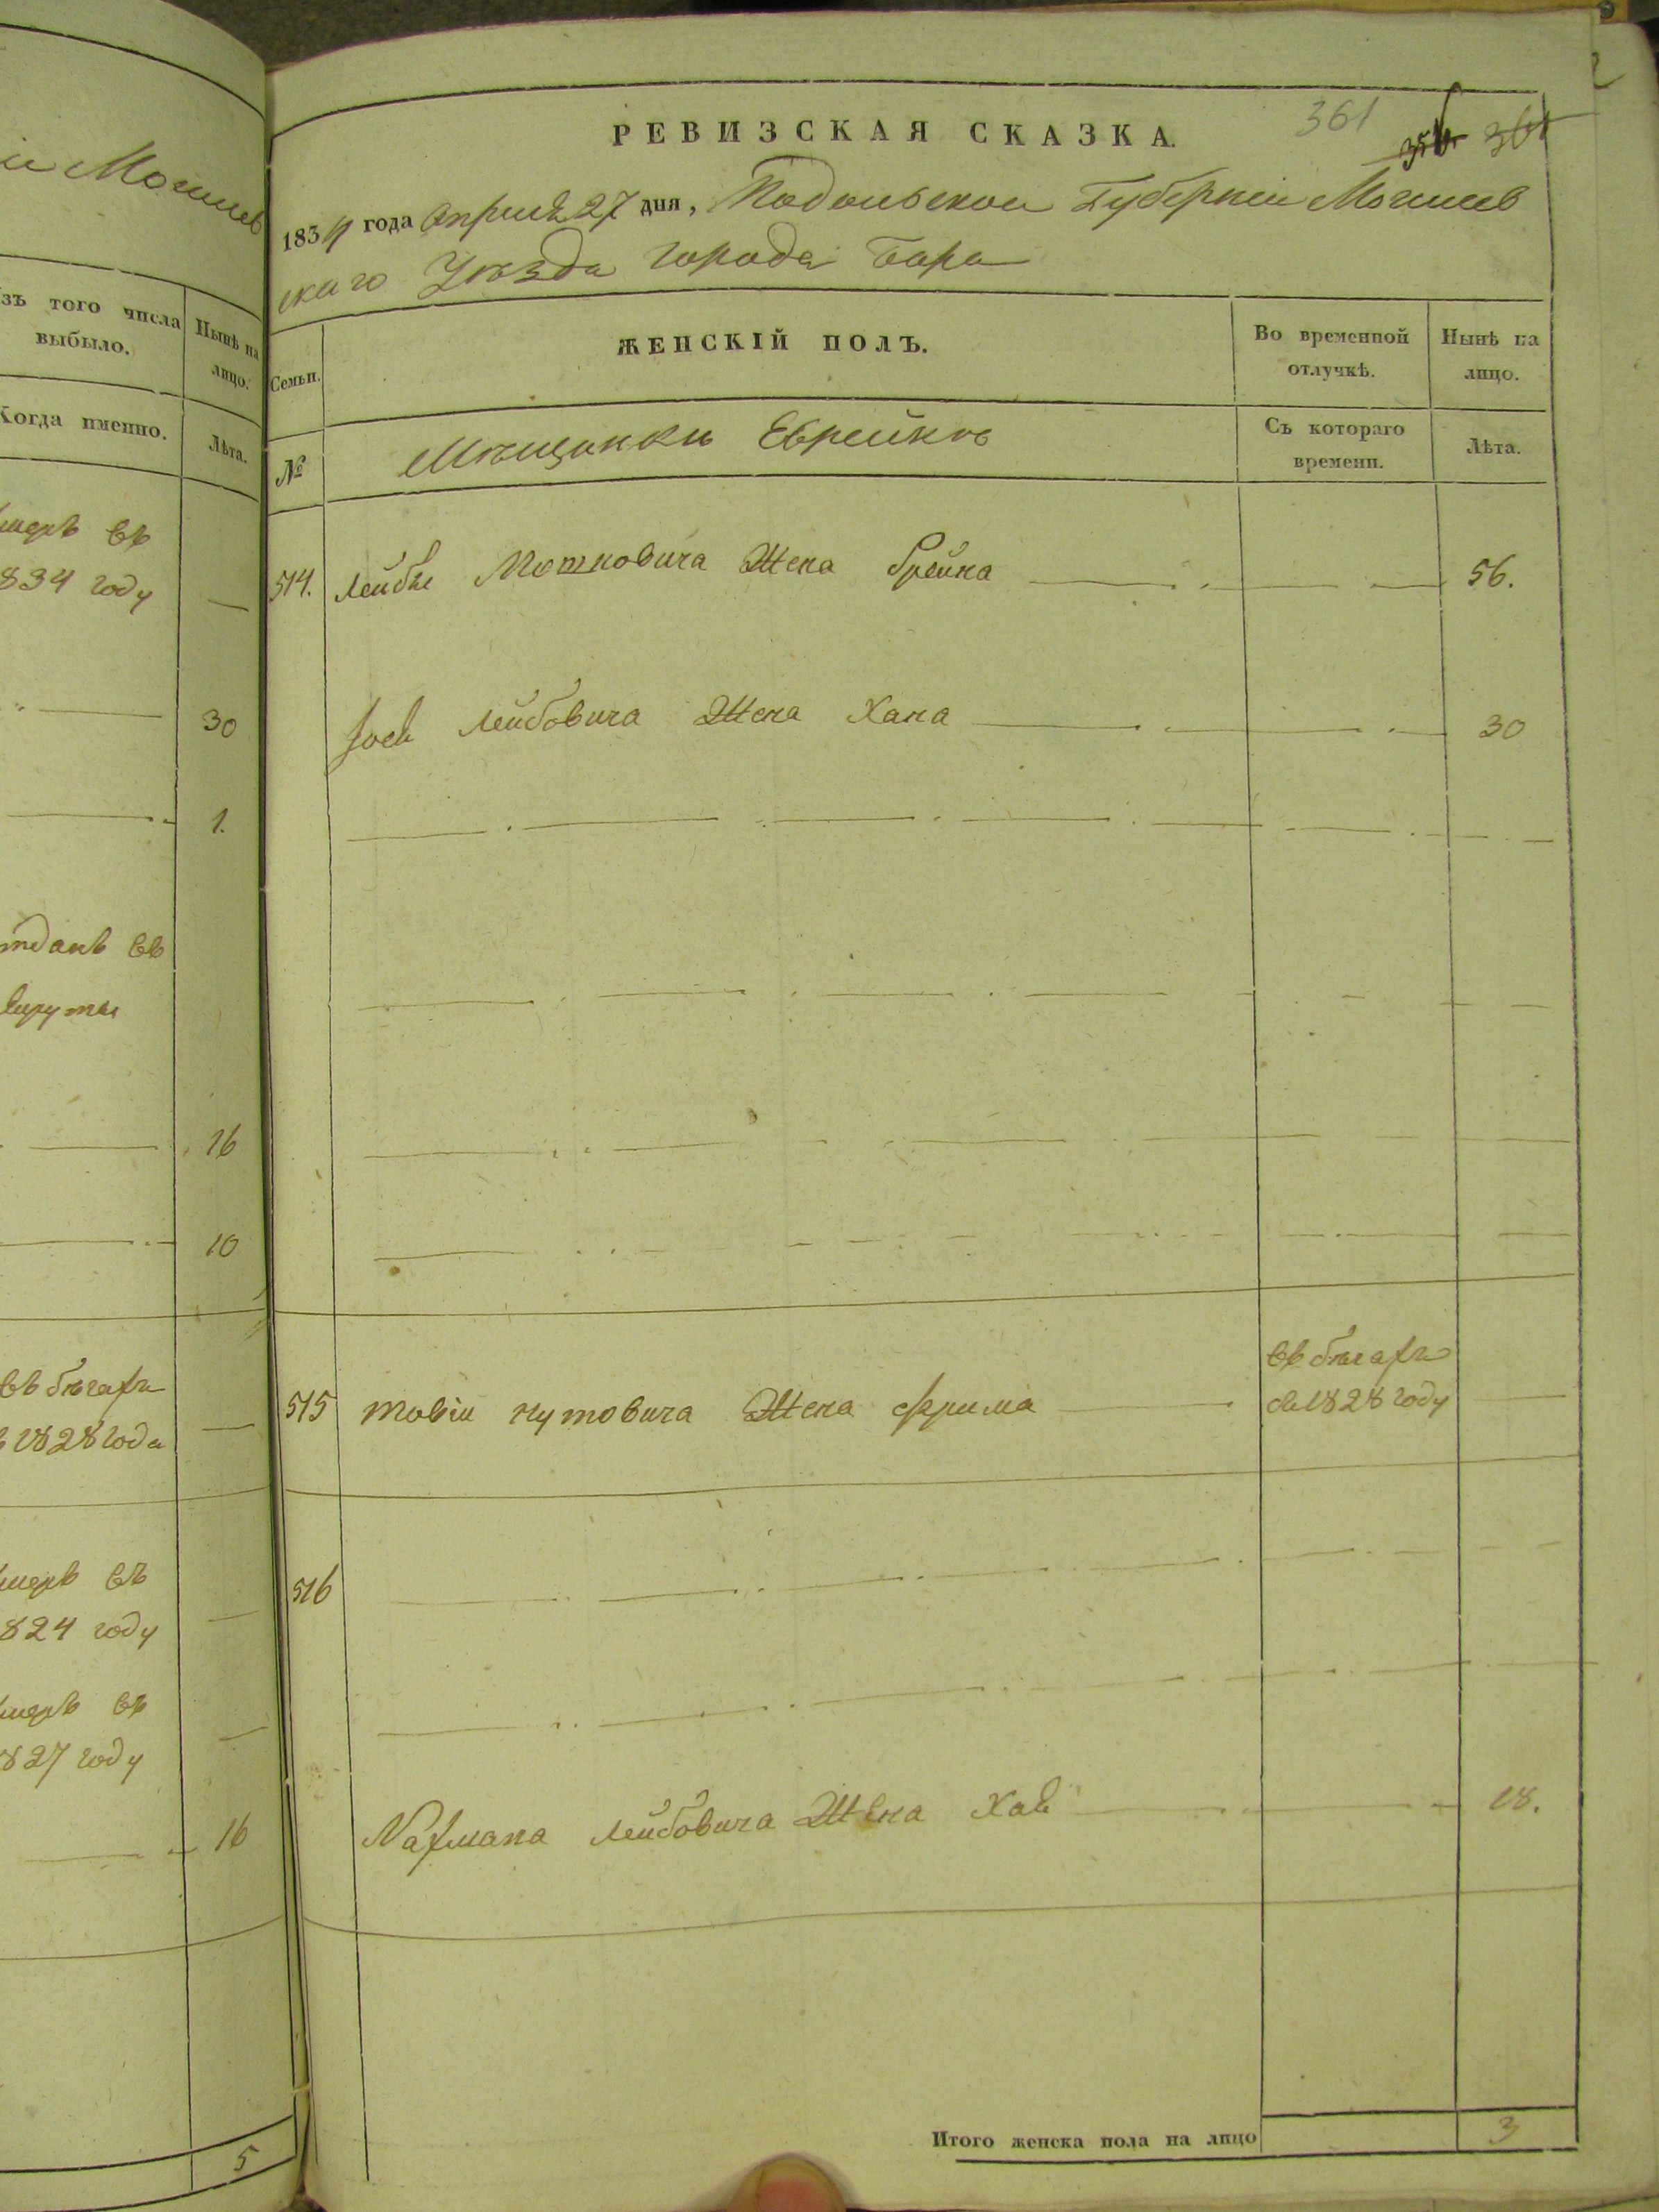 іи Могилев
зъ того числа
выбыло.
Нынѣ на
лицо.
Когда именно.
Лѣта.
умеръ въ
834 году
30
1.
отданъ въ
рекруты
16
10
въ бѣгахъ
1828 года
умеръ въ
824 году
умеръ въ
827 году
16
5
РЕВИЗСКАЯ СКАЗКА.
361
361
1834 года Апрѣля 27 дня, Подольской Губерніи Могилев
скаго Уѣзда города Бара
Семьи.
ЖЕНСКІЙ ПОЛЪ.
Во временной
отлучкѣ.
Нынѣ на
лицо.
№
Мѣщанки Еврейки
Съ котораго
времени.
Лѣта.
514. Лейбы Мошковича Жена Брейна 56.
Іосѣ Лейбовича Жена Хана 30
515 Товіи Нутовича Жена Фрима
въ бѣгахъ
съ 1828 году
516
Нахмана Лейбовича Жена Хаѣ 18.
Итого женска пола на лицо 3